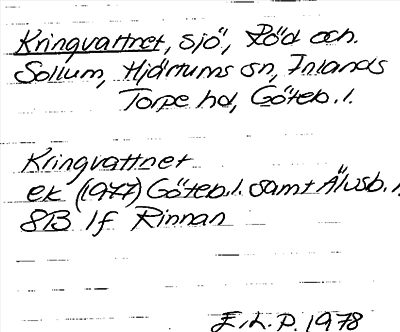 Kringvattnet, sjö, Röd och
Sollum, Hjärtums sn, Inlands
Torpe hd, Göteb. l.
Kringvattnet
ek (1977) Göteb. l. samt Älvsb. l.
8B 1f Rinnan
E. L. P. 1978